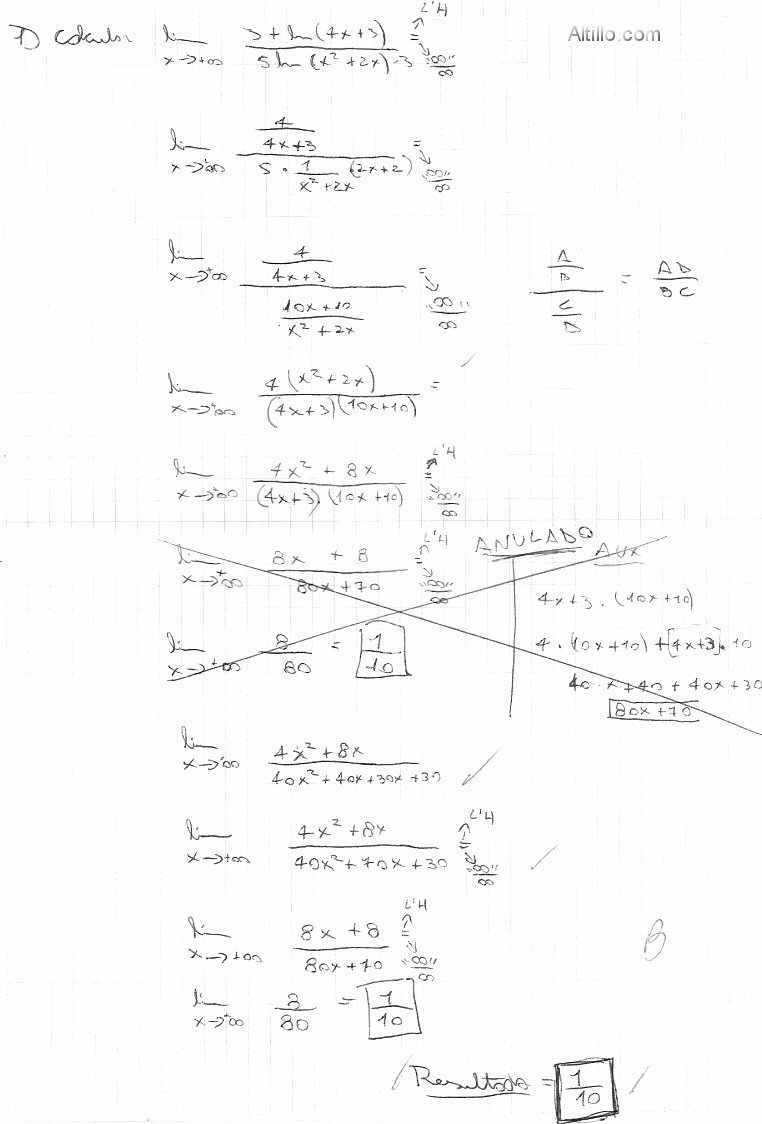 Altillo.com
7) calcular lim x→+∞ (3 + ln(4x+3)) / (5 ln(x²+2x) - 3) = L'H "∞/∞"
lim x→+∞ (4/(4x+3)) / (5 · 1/(x²+2x) (2x+2)) = "∞/∞"
lim x→+∞ (4/(4x+3)) / ((10x+10)/(x²+2x)) = "∞/∞"
(A/B) / (C/D) = AD/BC
lim x→+∞ 4(x²+2x) / (4x+3)(10x+10) =
lim x→+∞ (4x² + 8x) / (4x+3)·(10x+10) = L'H "∞/∞"
lim x→+∞ (8x + 8) / (80x+70) = L'H "∞/∞"
lim x→+∞ 8/80 = 1/10
ANULADO
AUX
4x+3 · (10x+10)
4 · (10x+10) + [4x+3] · 10
40 · x + 40 + 40x + 30
80x + 70
lim x→+∞ (4x² + 8x) / (40x² + 40x + 30x + 30)
lim x→+∞ (4x² + 8x) / (40x² + 70x + 30) = L'H "∞/∞"
lim x→+∞ (8x + 8) / (80x + 70) = L'H "∞/∞"
B
lim x→+∞ 8/80 = 1/10
Resultado = 1/10